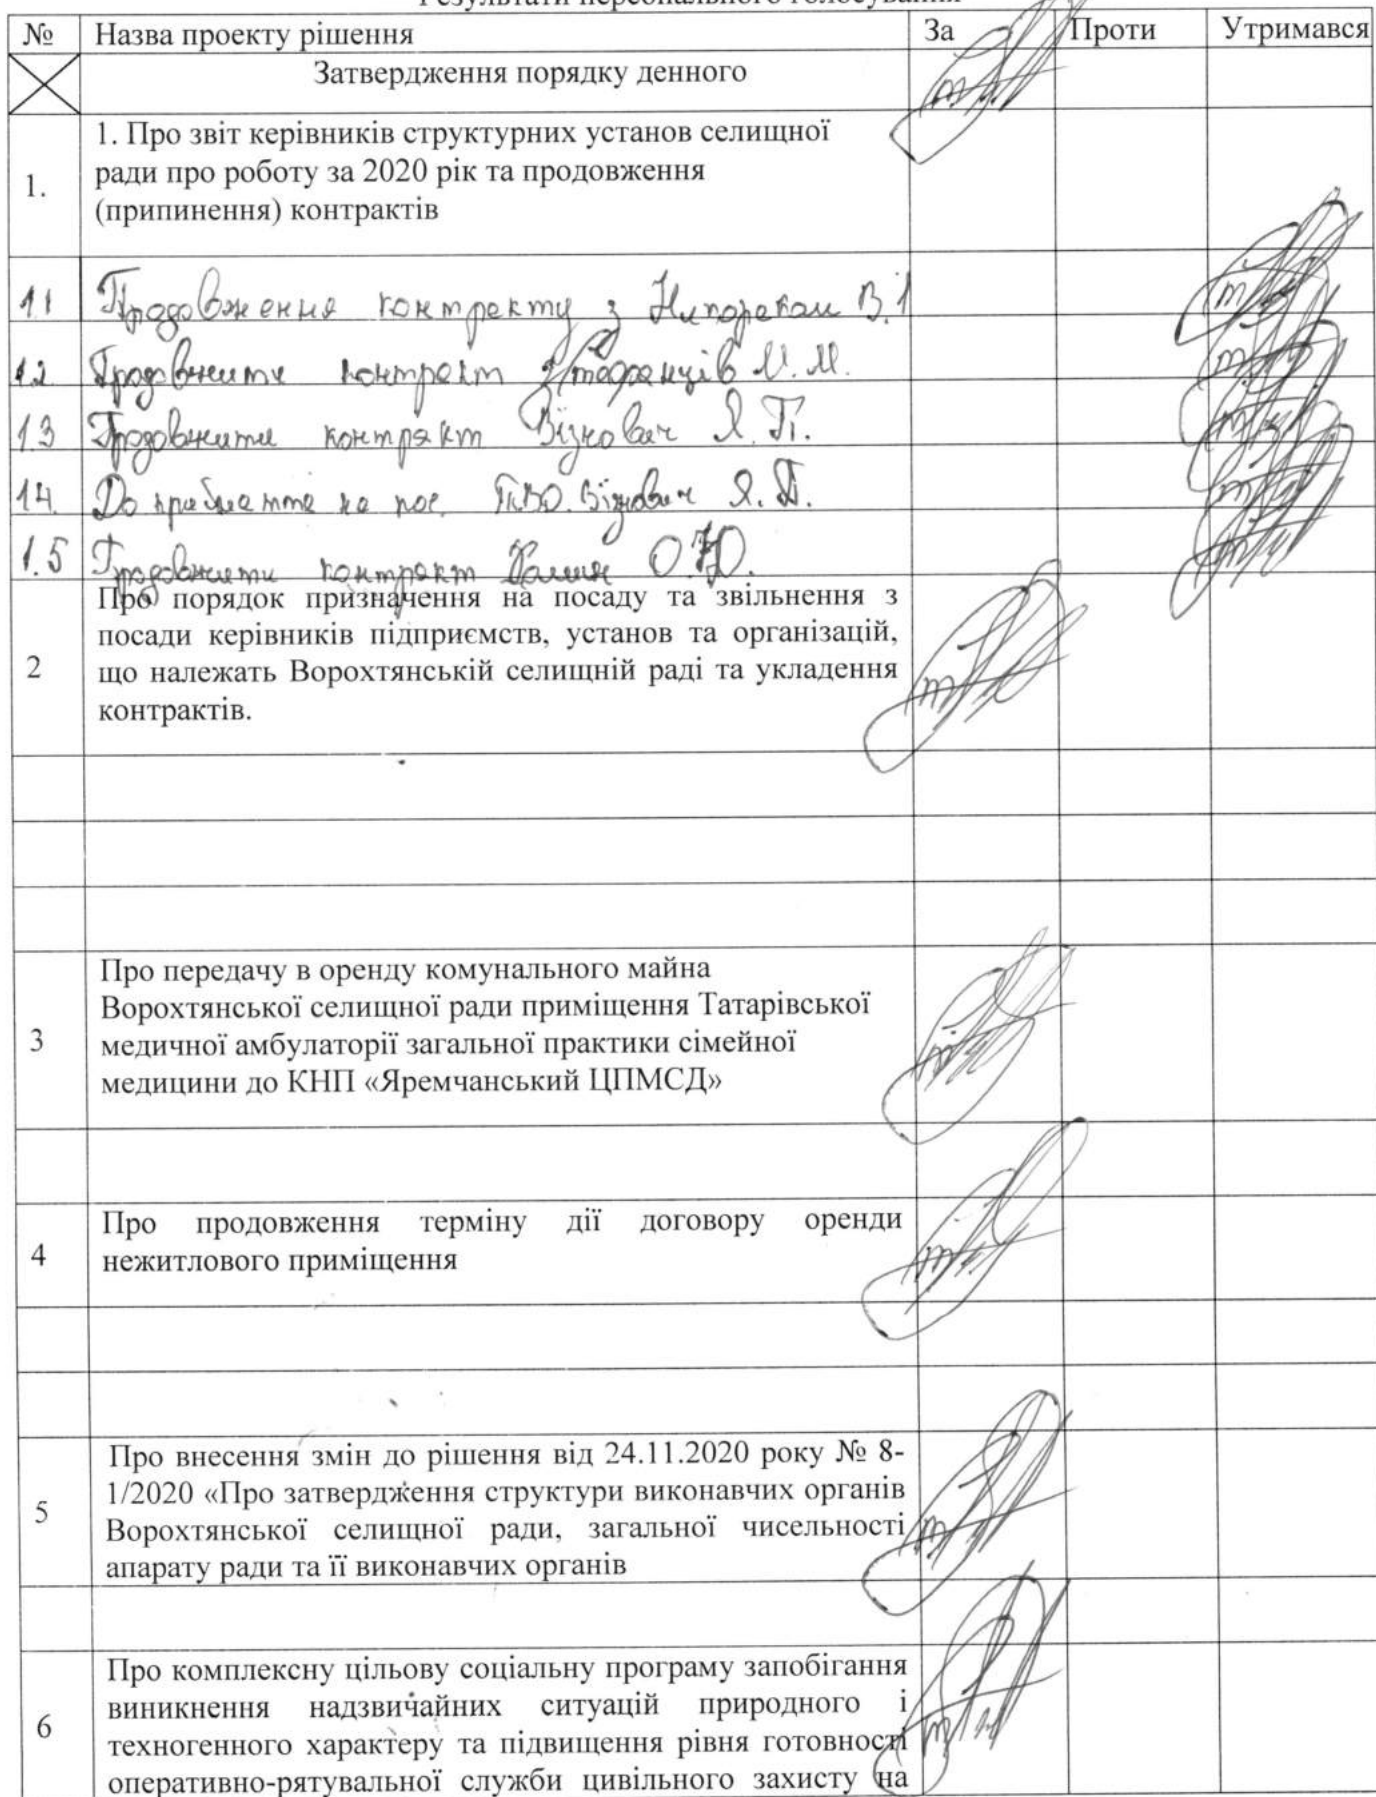 Результати персонального голосування
№ Назва проекту рішення За Проти Утримався
Затвердження порядку денного
1. Про звіт керівників структурних установ селищної
ради про роботу за 2020 рік та продовження
(припинення) контрактів
1.
1.1 Продовження контракту з В.І
1.2 Продовжити контракт М.М.
1.3 Продовжити контракт Візнович Я.П.
1.4. До на пос. ТВО. Візнович Я.П.
1.5 Продовжити контракт О.Ю.
Про порядок призначення на посаду та звільнення з
посади керівників підприємств, установ та організацій,
2 що належать Ворохтянській селищній раді та укладення
контрактів.
Про передачу в оренду комунального майна
Ворохтянської селищної ради приміщення Татарівської
3 медичної амбулаторії загальної практики сімейної
медицини до КНП «Яремчанський ЦПМСД»
Про продовження терміну дії договору оренди
4 нежитлового приміщення
Про внесення змін до рішення від 24.11.2020 року № 8-
1/2020 «Про затвердження структури виконавчих органів
5 Ворохтянської селищної ради, загальної чисельності
апарату ради та її виконавчих органів
Про комплексну цільову соціальну програму запобігання
виникнення надзвичайних ситуацій природного і
6 техногенного характеру та підвищення рівня готовності
оперативно-рятувальної служби цивільного захисту на